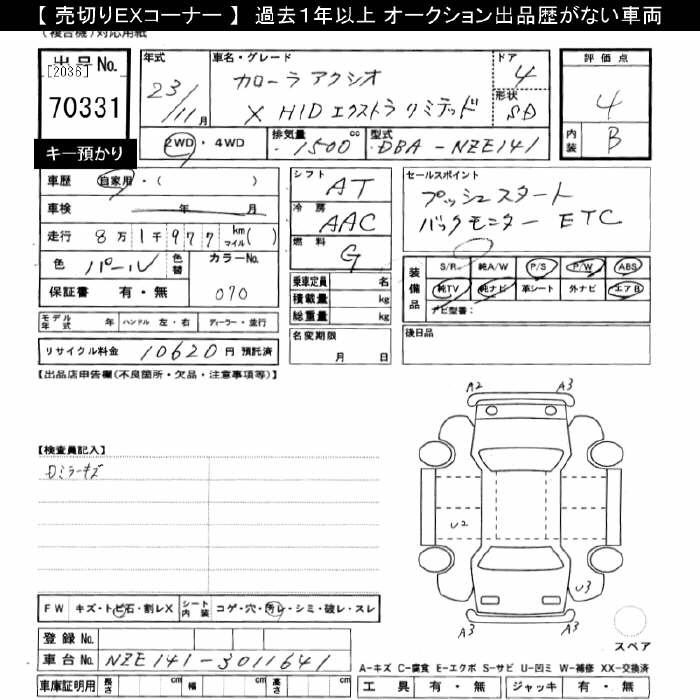 【 売切りEXコーナー 】 過去１年以上 オークション出品歴がない車両
(複合機)対応用紙
出品No.
[2036]
70331
キー預かり
年式
23/11月
車名・グレード
カローラ アクシオ
X HIDエクストラリミテッド
ドア
4
形状
SD
2WD・4WD
排気量
1500cc
型式
DBA-NZE141
評価点
4
内装
B
車歴 自家用・( )
車検 年 月
走行 8万1千977 km マイル( )
色 パール 色替
カラーNo.
070
保証書 有・無
シフト
AT
冷房
AAC
燃料
G
乗車定員 名
積載量 kg
総重量 kg
名変期限
月 日
セールスポイント
プッシュスタート
バックモニター ETC
装備品
S/R 純A/W P/S P/W ABS
純TV 純ナビ 革シート 外ナビ エアB
ナビ型番：
後日品
モデル年式 年 ハンドル 左・右 ディーラー・並行
リサイクル料金 10620円 預託済
【出品店申告欄(不良箇所・欠品・注意事項等)】
【検査員記入】
Dミラーキズ
A2 A3
U2
U3
A3 A3
スペア
FW キズ・トビ石・割レX
シート内装 コゲ・穴・汚レ・シミ・破レ・スレ
登録No.
車台No. NZE141-3011641
車庫証明用 長さ cm 幅 cm 高さ cm
A-キズ C-腐食 E-エクボ S-サビ U-凹ミ W-補修 XX-交換済
工具 有・無 ジャッキ 有・無